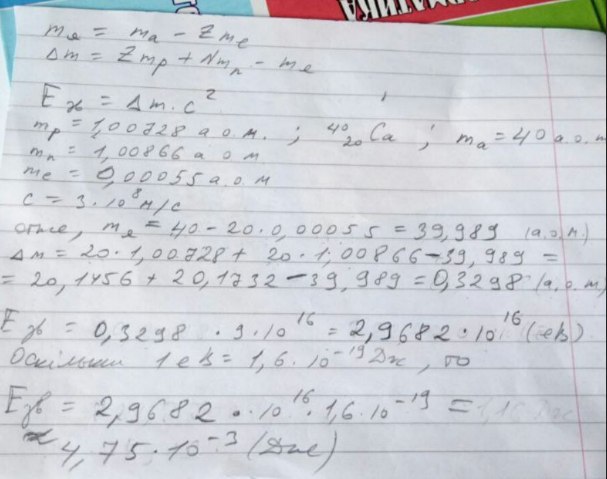 МАТИКА
mя = ma − Zme
Δm = Zmp + Nmn − me
Eзв = Δm·c²
mp = 1,00728 а.о.м. ; ⁴⁰₂₀Ca ; ma = 40 а.о.м
mn = 1,00866 а о м
me = 0,00055 а.о.м
c = 3·10⁸ м/с
отже, mя = 40 − 20·0,00055 = 39,989 (а.о.м.)
Δm = 20·1,00728 + 20·1,00866 − 39,989 =
= 20,1456 + 20,1732 − 39,989 = 0,3298 (а.о.м)
Eзв = 0,3298 · 9·10¹⁶ = 2,9682·10¹⁶ (еВ)
Оскільки 1 еВ = 1,6·10⁻¹⁹ Дж, то
Eзв = 2,9682·10¹⁶·1,6·10⁻¹⁹ =
≈ 4,75·10⁻³ (Дж)